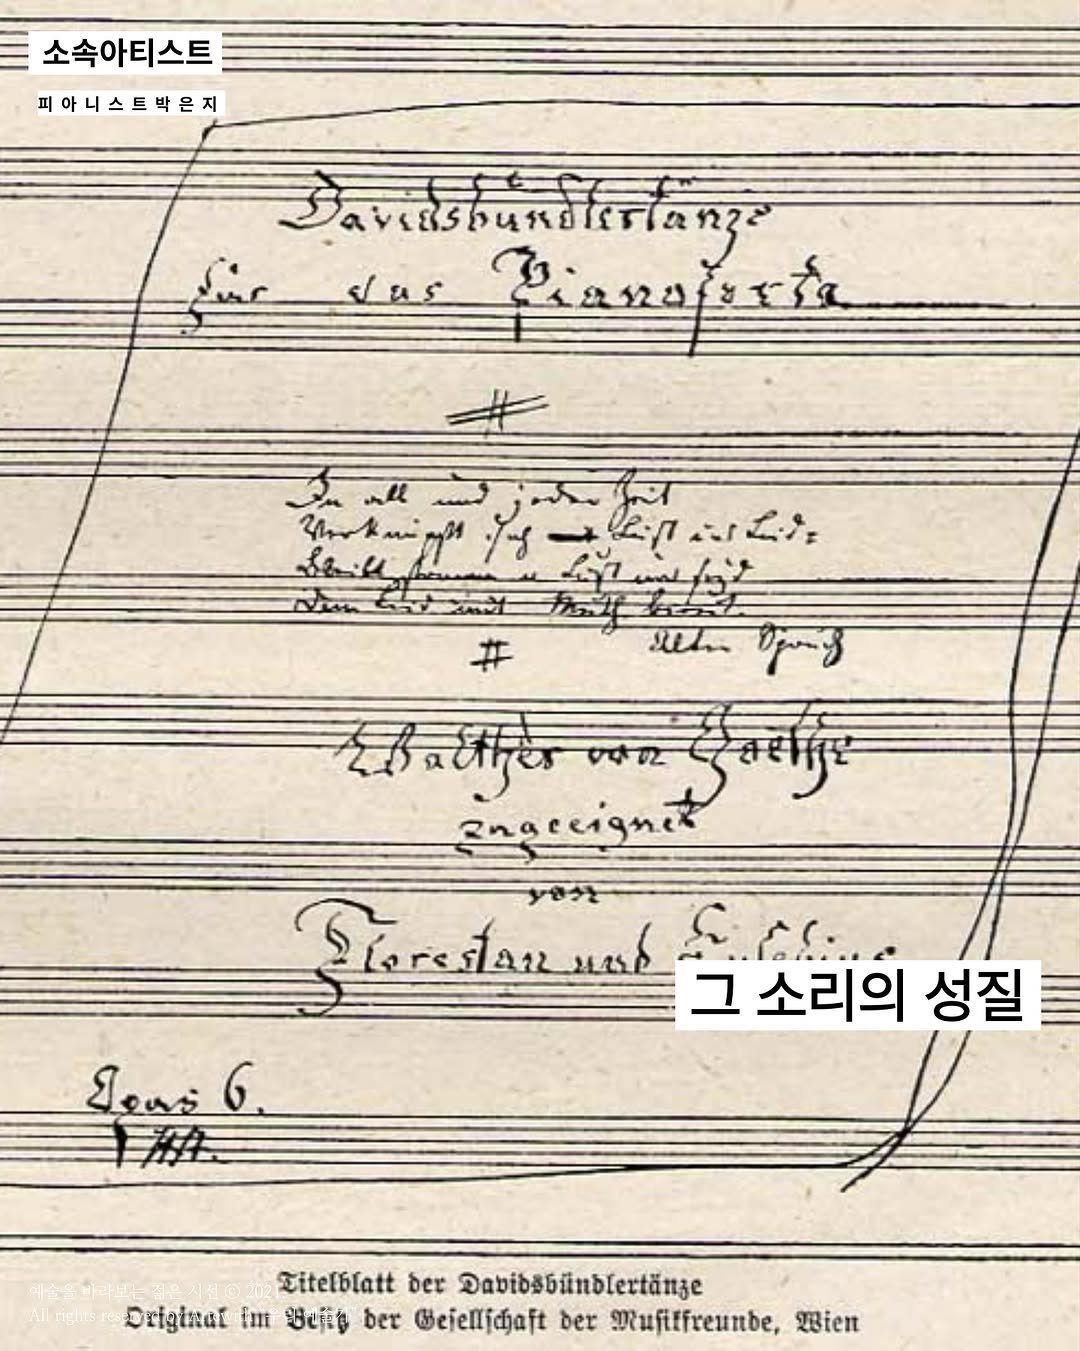 소속아티스트
피아니스트박은지
Davidsbündlertänze
für das Pianoforte
In all und jeder Zeit
Verknüpft sich Lust und Leid:
Bleibt fromm in Lust und seyd
Dem Leid mit Muth bereit.
Alter Spruch
Walther von Goethe
zugeeignet
von
Florestan und Eusebius
그 소리의 성질
Opus 6.
예술을 바라보는 젊은 시선 ⓒ 2021.
Titelblatt der Davidsbündlertänze
All rights reserved by
Original im Besitz der Gesellschaft der Musikfreunde, Wien